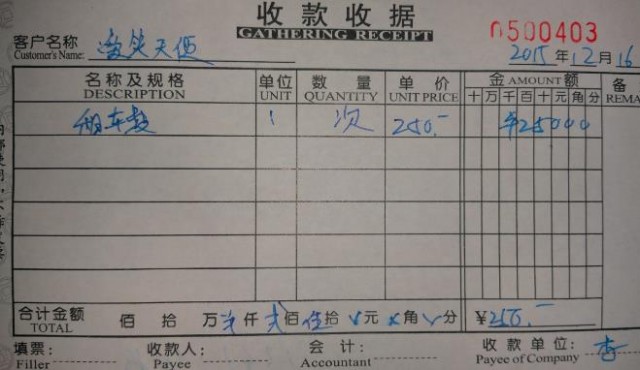 收款收据
GATHERING RECEIPT
0500403
客户名称 微笑天使
Customer's Name:
2015年12月16
名称及规格 单位 数量 单价 金 AMOUNT 额 备
DESCRIPTION UNIT QUANTITY UNIT PRICE 十 万 千 百 十 元 角 分 REMA
租车款 1 次 250.- ¥25000
合计金额 佰 拾 万 仟 贰佰 伍拾 元 角 分 ¥250.-
TOTAL
填票: 收款人: 会计: 收款单位: 李
Filler Payee Accountant Payee of Company